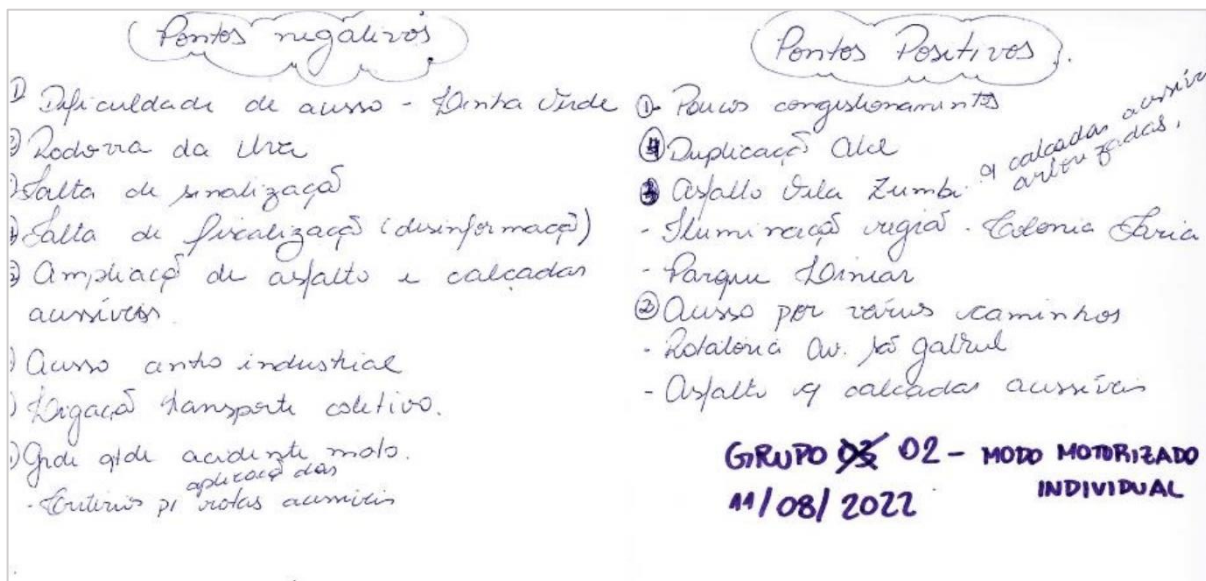 Pontos negativos
① Dificuldade de acesso - Linha Verde
② Rodovia da Uva
Falta de sinalização
Falta de fiscalização (desinformação)
⑤ Ampliação de asfalto e calçadas
acessíveis.
) Acesso centro industrial
) Ligação transporte coletivo.
) Gde qtde acidente moto.
- Critérios p/ aplicação das rotas acessíveis
Pontos Positivos.
① - Poucos congestionamentos
④ Duplicação Abel
③ Asfalto Vila Zumbi. c/ calçadas acessíveis arborizadas.
- Iluminação região - Colonia Faria
- Parque Linear
② Acesso por vários caminhos
- Rotatória Av. São Gabriel
- Asfalto c/ calçadas acessíveis
GRUPO 02 - MODO MOTORIZADO
INDIVIDUAL
11/08/2022